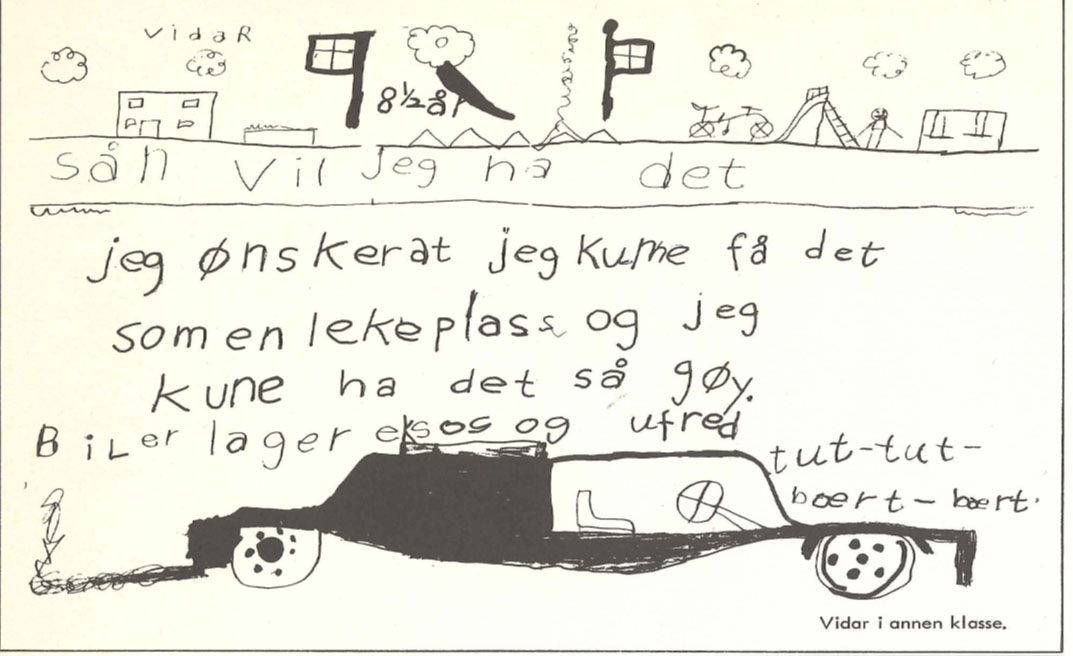 vidaR
8½år
sån vil jeg ha det
jeg ønskerat jeg kune få det
som en lekeplass og jeg
kune ha det så gøy.
BiLer lager eksos og ufred
tut-tut-
bært-bært.
Vidar i annen klasse.